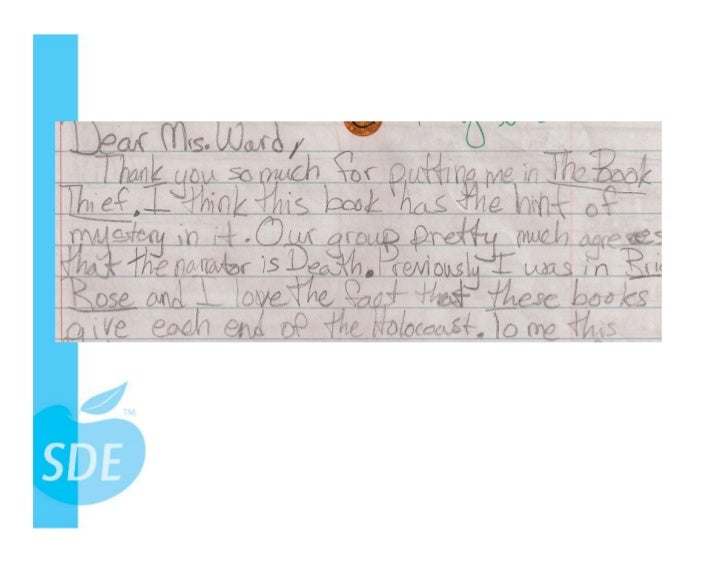 Dear Mis. Ward,
Thank you so much for putting me in The Book
Thief. I think this book has the hint of
mystery in it. Our group pretty much agrees
that the narrator is Death. Previously I was in Bri
Rose and I love the fact that these books
give each end of the Holocoast. To me this
SDE
TM